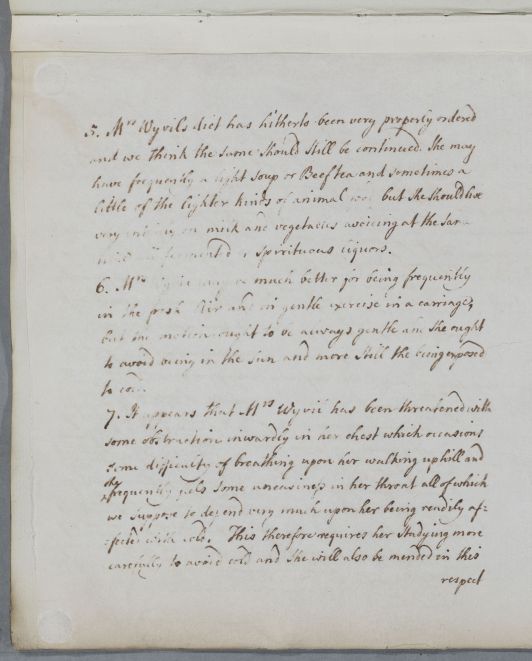 5. Mrs Wyvils diet has hitherto been very properly ordered
and we think the same should still be continued. She may
have frequently a light soup or Beef tea and sometimes a
little of the lighter kinds of animal food but she should live
very on milk and vegetables avoiding at the same
all fermented or spirituous liquors.
6. Mrs much better for being frequently
in the fresh Air and in gentle exercise in a carriage,
but the motion ought to be always gentle and she ought
to avoid being in the sun and more still the being exposed
to cold.
7. It appears that Mrs Wyvil has been threatened with
some obstruction inwardly in her chest which occasions
some difficulty of breathing upon her walking uphill and
she frequently feels some uneasiness in her throat all of which
we suppose to depend very much upon her being readily af=
=fected with cold. This therefore requires her studying more
carefully to avoid cold and she will also be mended in this
respect